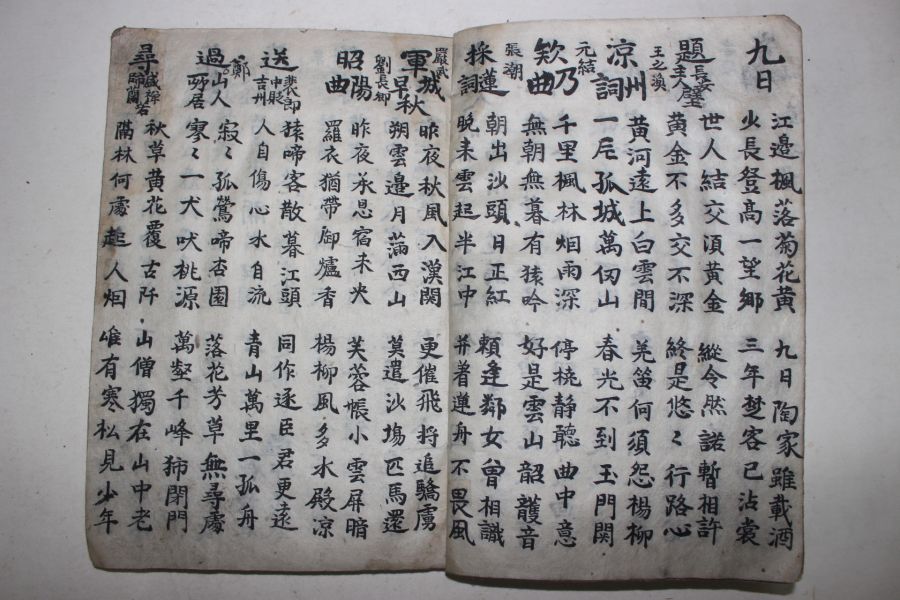 九日
江邊楓落菊花黃
少長登高一望鄉
九日陶家雖載酒
三年楚客已沾裳
題長安主人壁
世人結交須黃金
黃金不多交不深
縱令然諾暫相許
終是悠〻行路心
王之渙
凉州詞
黃河遠上白雲間
一片孤城萬仞山
羌笛何須怨楊柳
春光不到玉門関
元結
欸乃曲
千里楓林烟雨深
無朝無暮有猿吟
停橈静聽曲中意
好是雲山韶頀音
張潮
採蓮詞
朝出沙頭日正紅
晚来雲起半江中
賴逢鄰女曾相識
并著蓮舟不畏風
嚴武
軍城早秋
昨夜秋風入漢関
朔雲邊月滿西山
更催飛将追驕虜
莫遣沙塲匹馬還
劉長卿
昭陽曲
昨夜承恩宿未央
羅衣猶帶御爐香
芙蓉帳小雲屏暗
楊柳風多水殿凉
送裴郎中貶吉州
猿啼客散暮江頭
人自傷心水自流
同作逐臣君更遠
青山萬里一孤舟
過鄭山人所居
寂〻孤鶯啼杏園
寥〻一犬吠桃源
落花芳草無尋處
萬壑千峰獨閉門
尋盛禪師蘭若
秋草黃花覆古阡
隔林何處起人烟
山僧獨在山中老
唯有寒松見少年